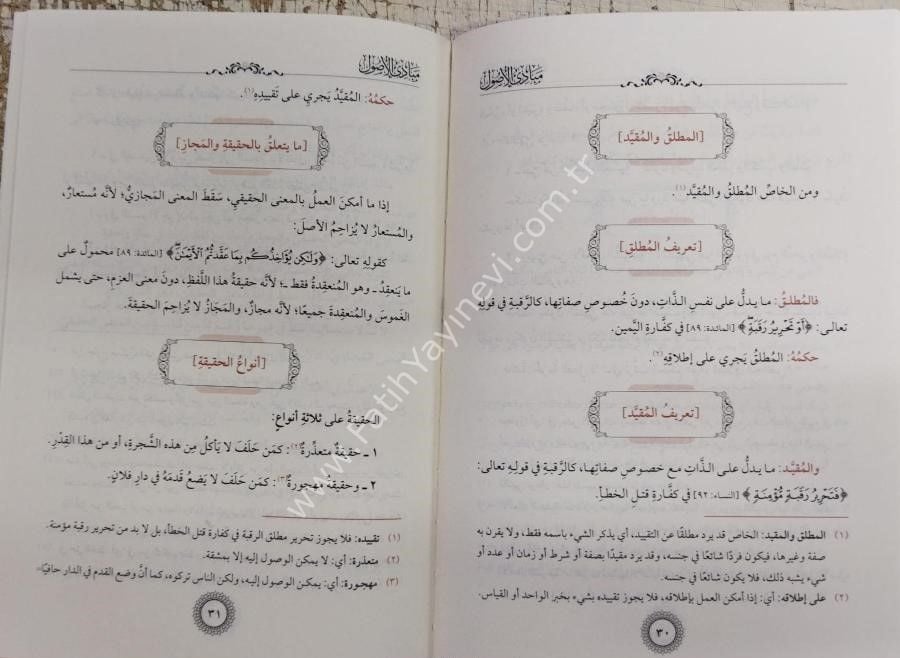 مبادئ الأصول
[المطلقُ والمُقيَّد]
ومن الخاصِّ المُطلقُ والمُقيَّد(١).
[تعريفُ المُطلقِ]
فالمُطلقُ: ما يدلُّ على نفسِ الذَّاتِ، دون خُصوصِ صفاتِها، كالرَّقبةِ في قولِه
تعالى: ﴿أَوْ تَحْرِيرُ رَقَبَةٍ﴾ [المائدة: ٨٩] في كفَّارةِ اليَّمين.
حكمُهُ: المُطلقُ يَجري على إطلاقِهِ(٢).
[تعريفُ المُقيَّد]
والمُقيَّد: ما يدلُّ على الذَّاتِ مع خصوصِ صفاتِها، كالرَّقبةِ في قولِه تعالى:
﴿فَتَحْرِيرُ رَقَبَةٍ مُؤْمِنَةٍ﴾ [النساء: ٩٢] في كفَّارةِ قتلِ الخطأ.
(١) المطلق والمقيد: الخاص قد يرد مطلقًا عن التقييد، أي يذكر الشيء باسمه فقط، ولا يقرن به
صفة وغيرها، فيكون فردًا شائعًا في جنسه، وقد يرد مقيدًا بصفة أو شرط أو زمان أو عدد أو
شيء يشبه ذلك، فلا يكون شائعًا في جنسه.
(٢) على إطلاقه: أي: إذا أمكن العمل بإطلاقه، فلا يجوز تقييده بشيء بخبر الواحد أو القياس.
٣٠
مبادئ الأصول
حكمُهُ: المُقيَّدُ يَجري على تَقييدِهِ(١).
[ما يتعلَّقُ بالحقيقةِ والمَجازِ]
إذا ما أمكنَ العملُ بالمعنى الحقيقي، سَقَطَ المعنى المَجازيُّ؛ لأنَّه مُستعارٌ،
والمُستعارُ لا يُزاحِمُ الأصلَ:
كقولِهِ تعالى: ﴿وَلَكِنْ يُؤَاخِذُكُمْ بِمَا عَقَّدْتُمُ الْأَيْمَانَ﴾ [المائدة: ٨٩] محمولٌ على
ما يَنعقِدُ ـ وهو المُنعقِدةُ فقط ـ؛ لأنَّه حقيقةُ هذا اللَّفظِ، دونَ معنى العزمِ، حتى يشمل
الغَموسَ والمُنعقِدةَ جميعًا؛ لأنَّه مجازٌ، والمَجازُ لا يُزاحِم الحقيقةَ.
[أنواعُ الحقيقةِ]
الحقيقةُ على ثلاثةِ أنواعٍ:
١ ـ حقيقةٌ متعذِّرةٌ(٢): كمَن حَلَفَ لا يأكلُ مِن هذه الشَّجرةِ، أو من هذا القِدْرِ.
٢ ـ وحقيقةٌ مهجورةٌ(٣): كمَن حَلَفَ لا يَضعُ قَدَمَهُ في دارِ فلانٍ.
(١) تقييده: فلا يجوز تحرير مطلق الرقبة في كفارة قتل الخطأ، بل لا بد من تحرير رقبة مؤمنة.
(٢) متعذرة: أي: لا يمكن الوصول إليه إلا بمشقة.
(٣) مهجورة: أي: يمكن الوصول إليه، ولكن الناس تركوه، كما أنَّ وضع القدم في الدار حافيًا
٣١
www.FatihYayinevi.com.tr